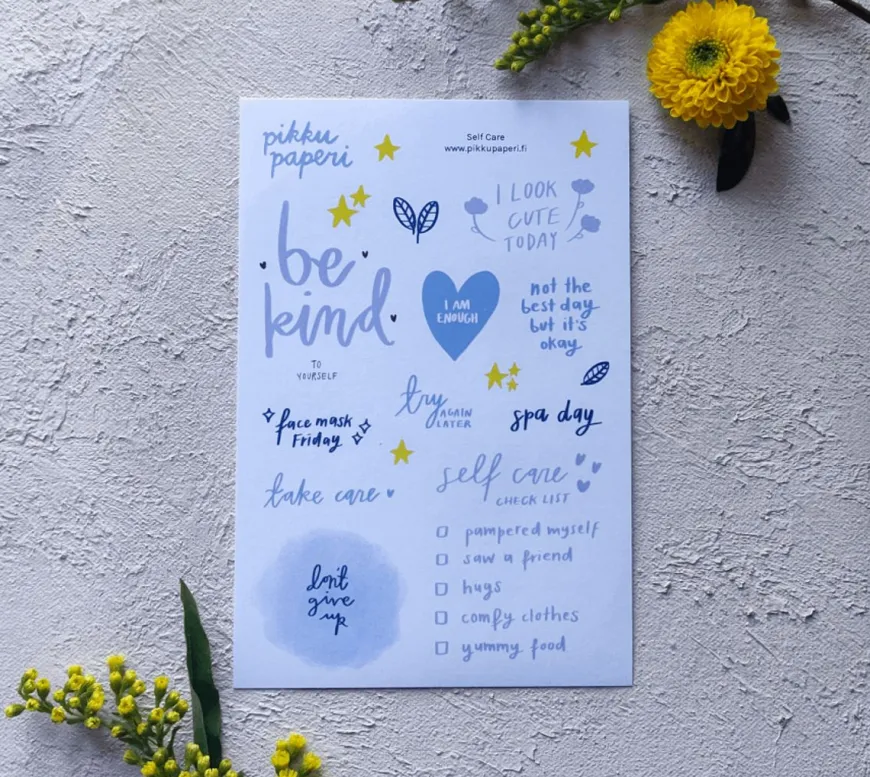 pikku
paperi
Self Care
www.pikkupaperi.fi
be
kind
TO
YOURSELF
I LOOK
CUTE
TODAY
I AM
ENOUGH
not the
best day
but it's
okay
face mask
Friday
try
AGAIN
LATER
spa day
take care
self care
CHECK LIST
pampered myself
saw a friend
hugs
comfy clothes
yummy food
don't
give
up